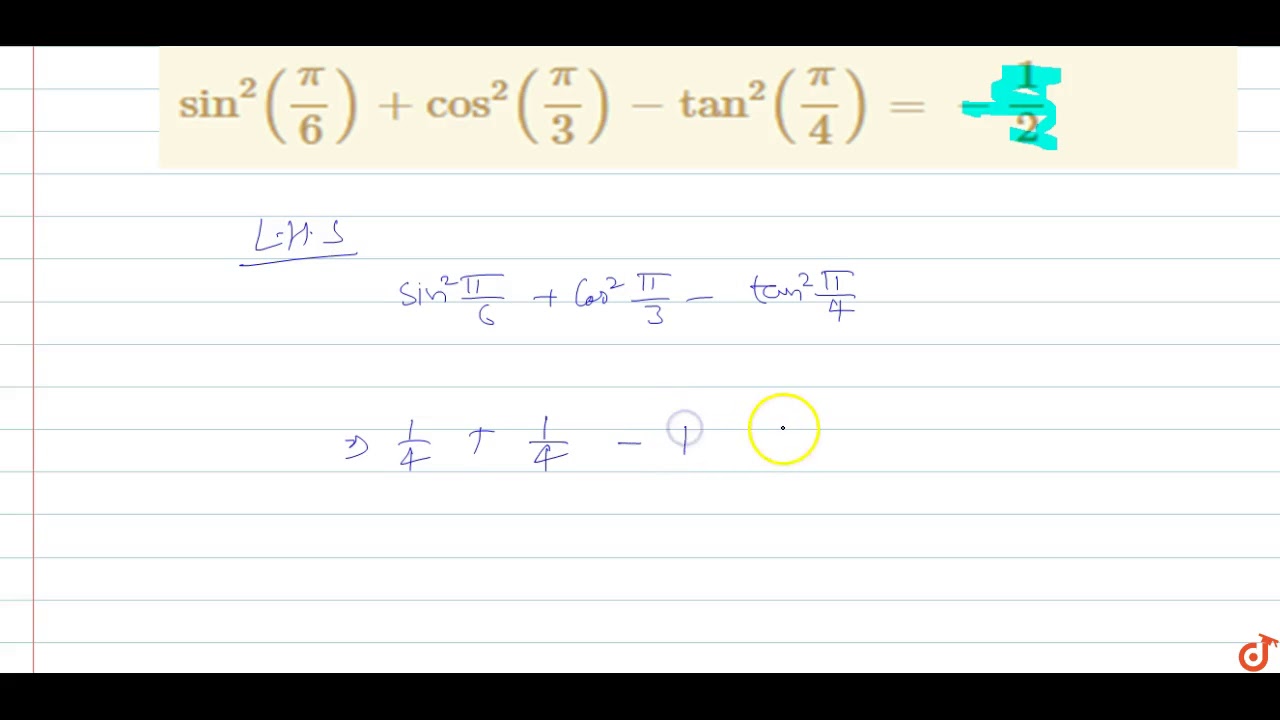 sin²(π/6) + cos²(π/3) − tan²(π/4) = −1/2
L.H.S
sin² π/6 + Cos² π/3 − tan² π/4
⇒ 1/4 + 1/4 − 1